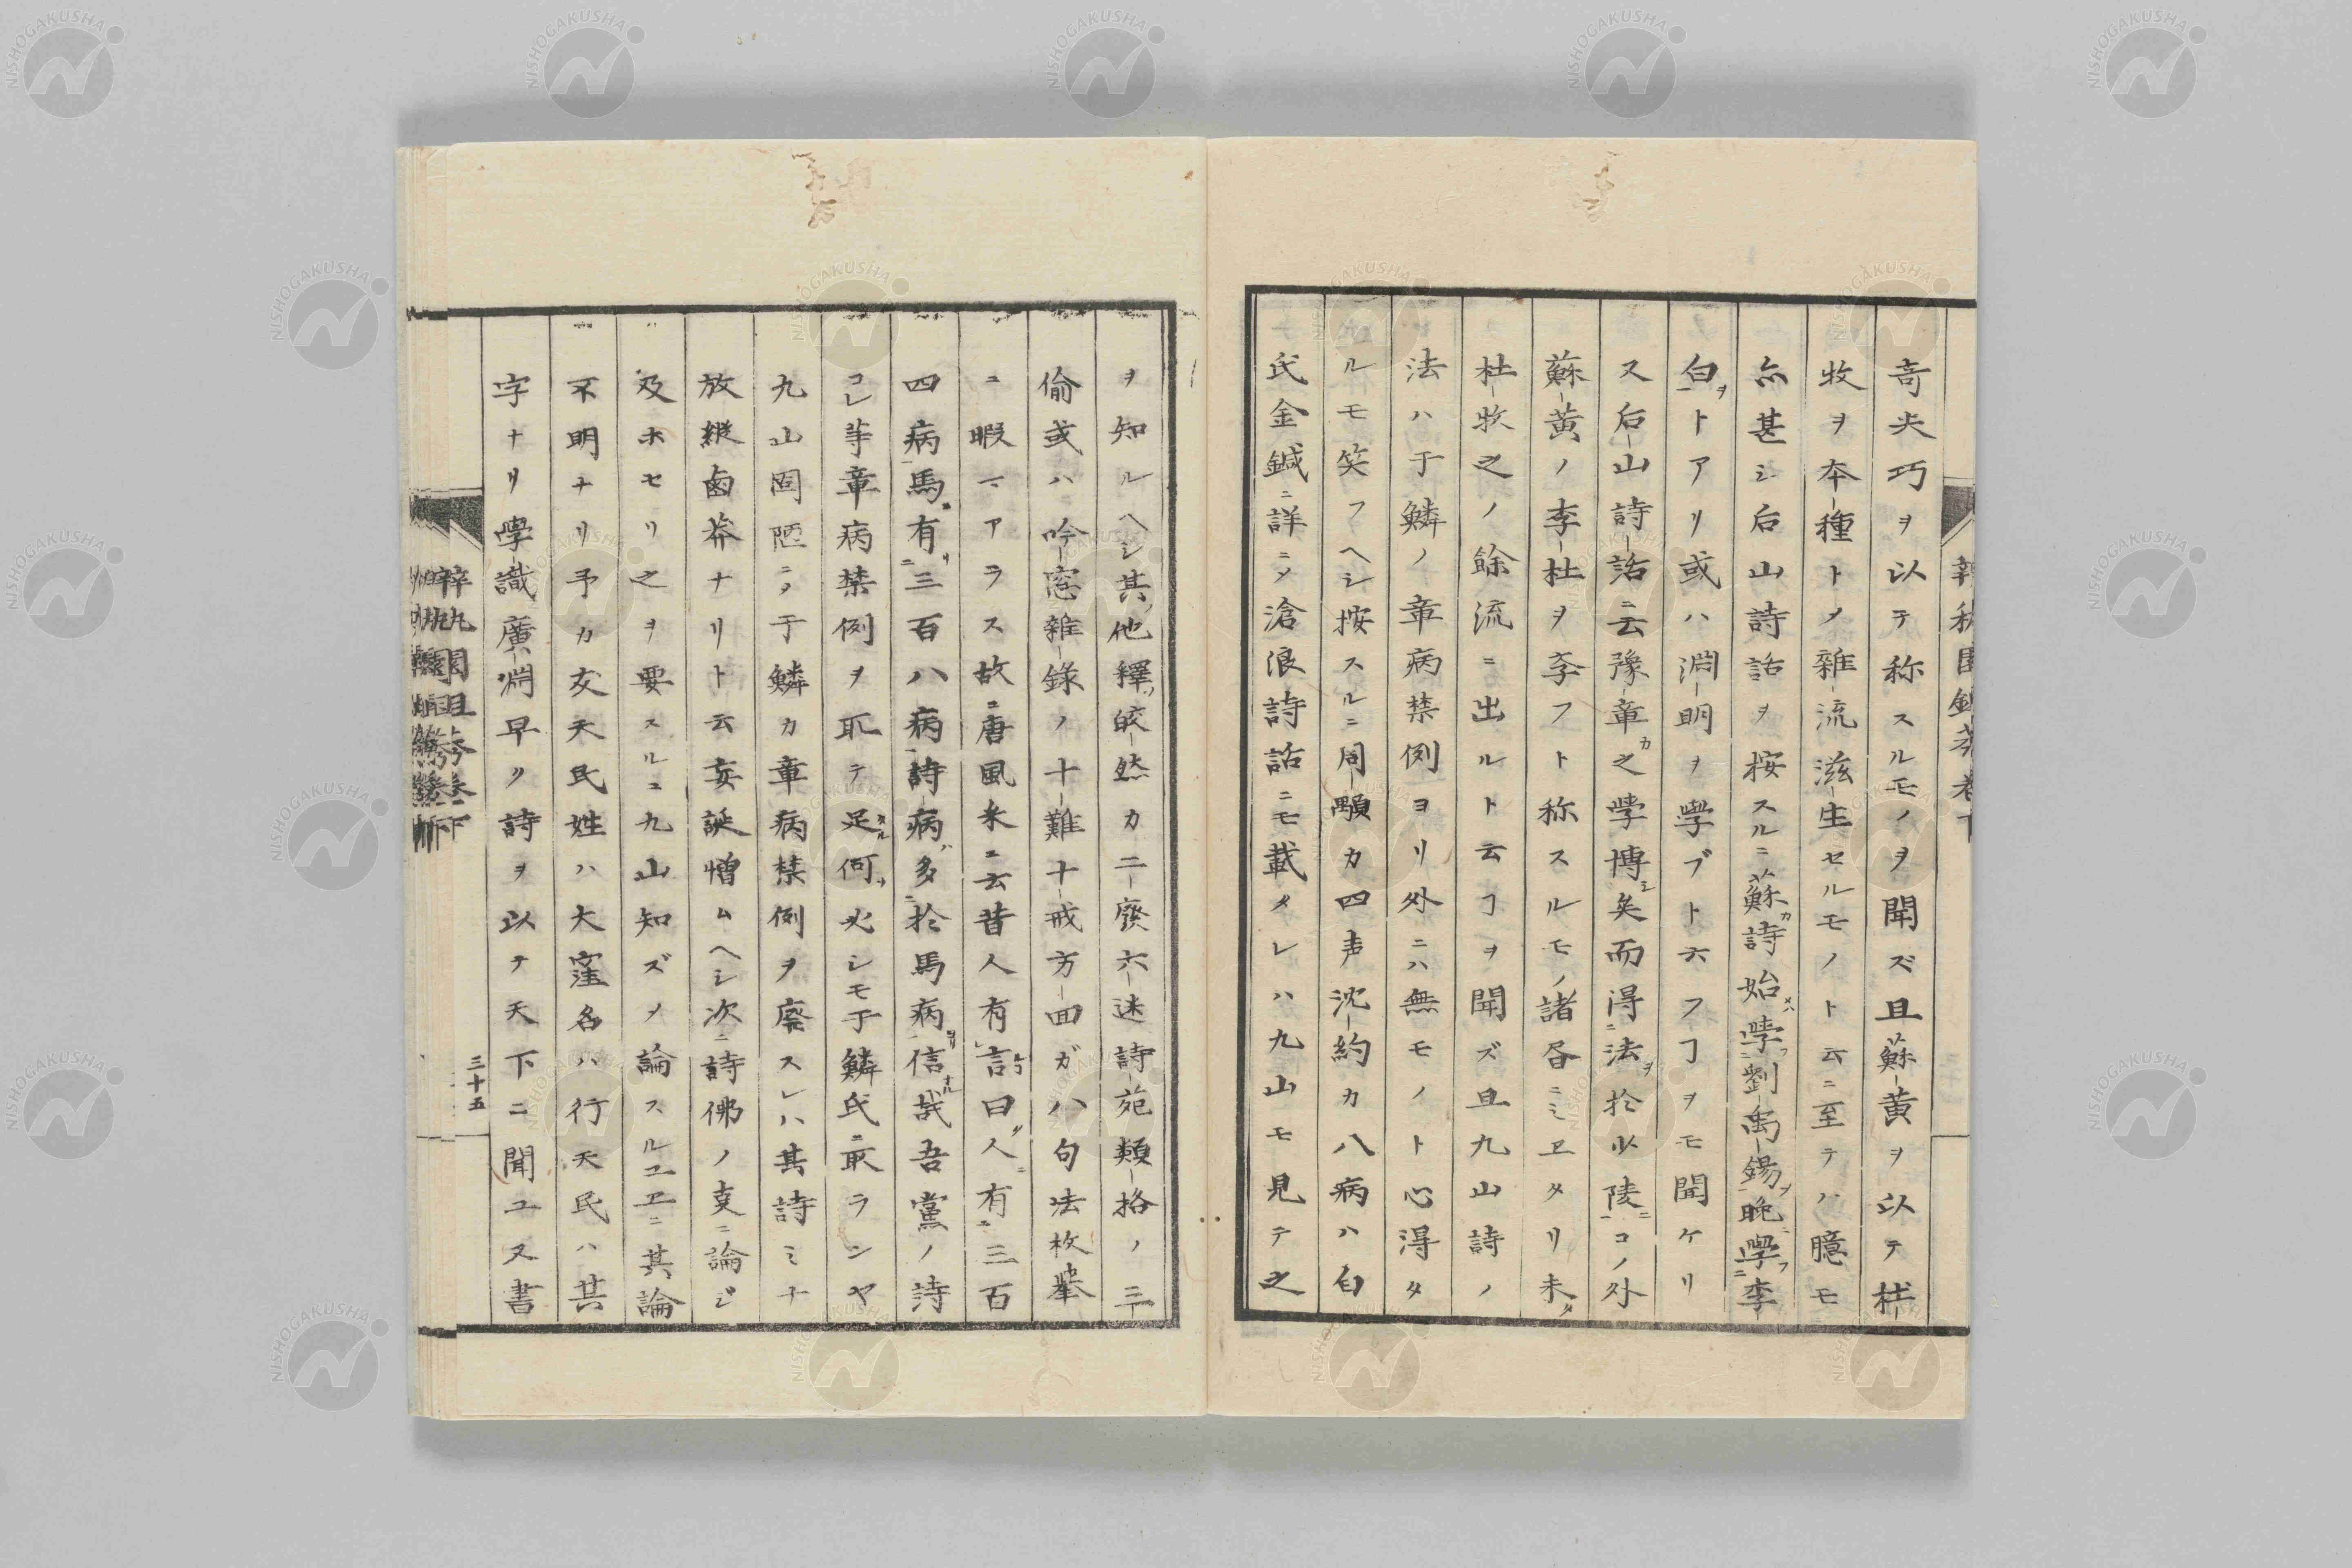 奇尖巧ヲ以テ称スルモノヲ聞ズ且蘇黄ヲ以テ杜
牧ヲ本種トメ雜流滋生セルモノト云ニ至テハ臆モ
亦甚シ后山詩話ヲ按スルニ蘇詩始學劉禹錫晩學李
白トアリ或ハ淵明ヲ學ブト云フヿヲモ聞ケリ
又后山詩話云豫章之學博矣而得法於少陵コノ外
蘇黄ノ李杜ヲ学フト称スルモノ諸書ニミヱタリ未
杜牧之ノ餘流ニ出ルト云ヿヲ聞ズ且九山詩ノ
法ハ于鱗ノ章病禁例ヨリ外ニハ無モノト心得タ
ルモ笑フヘシ按スルニ周顒カ四声沈約カ八病ハ白
氏金鍼ニ詳ニメ滄浪詩話ニモ載タレハ九山モ見テ之
ヲ知ルヘシ其他釋皎然カ二廢六迷詩苑類格ノ三
偷或ハ吟窓雜錄ノ十難十戒方回ガ八句法枚擧
ニ暇アラス故ニ唐風采ニ云昔人有言曰人有三百
四病馬有三百八病詩病多於馬病信哉吾黨ノ詩
コレ等章病禁例ヲ取テ足何必シモ于鱗氏ニ取ランヤ
九山固陋ニメ于鱗カ章病禁例ヲ廢スレハ其詩ミナ
放縦鹵莽ナリト云妄誕憎ムヘシ次ニ詩佛ノ叓ニ論ジ
及ホセリ之ヲ要スルニ九山知ズメ論スルユヱニ其論
不明ナリ予カ友天民姓ハ大窪名ハ行天民ハ其
字ナリ學識廣淵早ク詩ヲ以テ天下ニ聞ユ又書
三十五
NISHOGAKUSHA